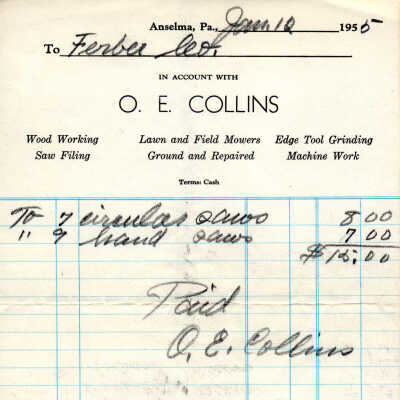 Anselma, Pa., Jan. 10 1955
To Ferber Co.
IN ACCOUNT WITH
O. E. COLLINS
Wood Working Lawn and Field Mowers Edge Tool Grinding
Saw Filing Ground and Repaired Machine Work
Terms: Cash
To 7 circular saws 8 00
" 9 hand saws 7 00
$15.00
Paid
O. E. Collins